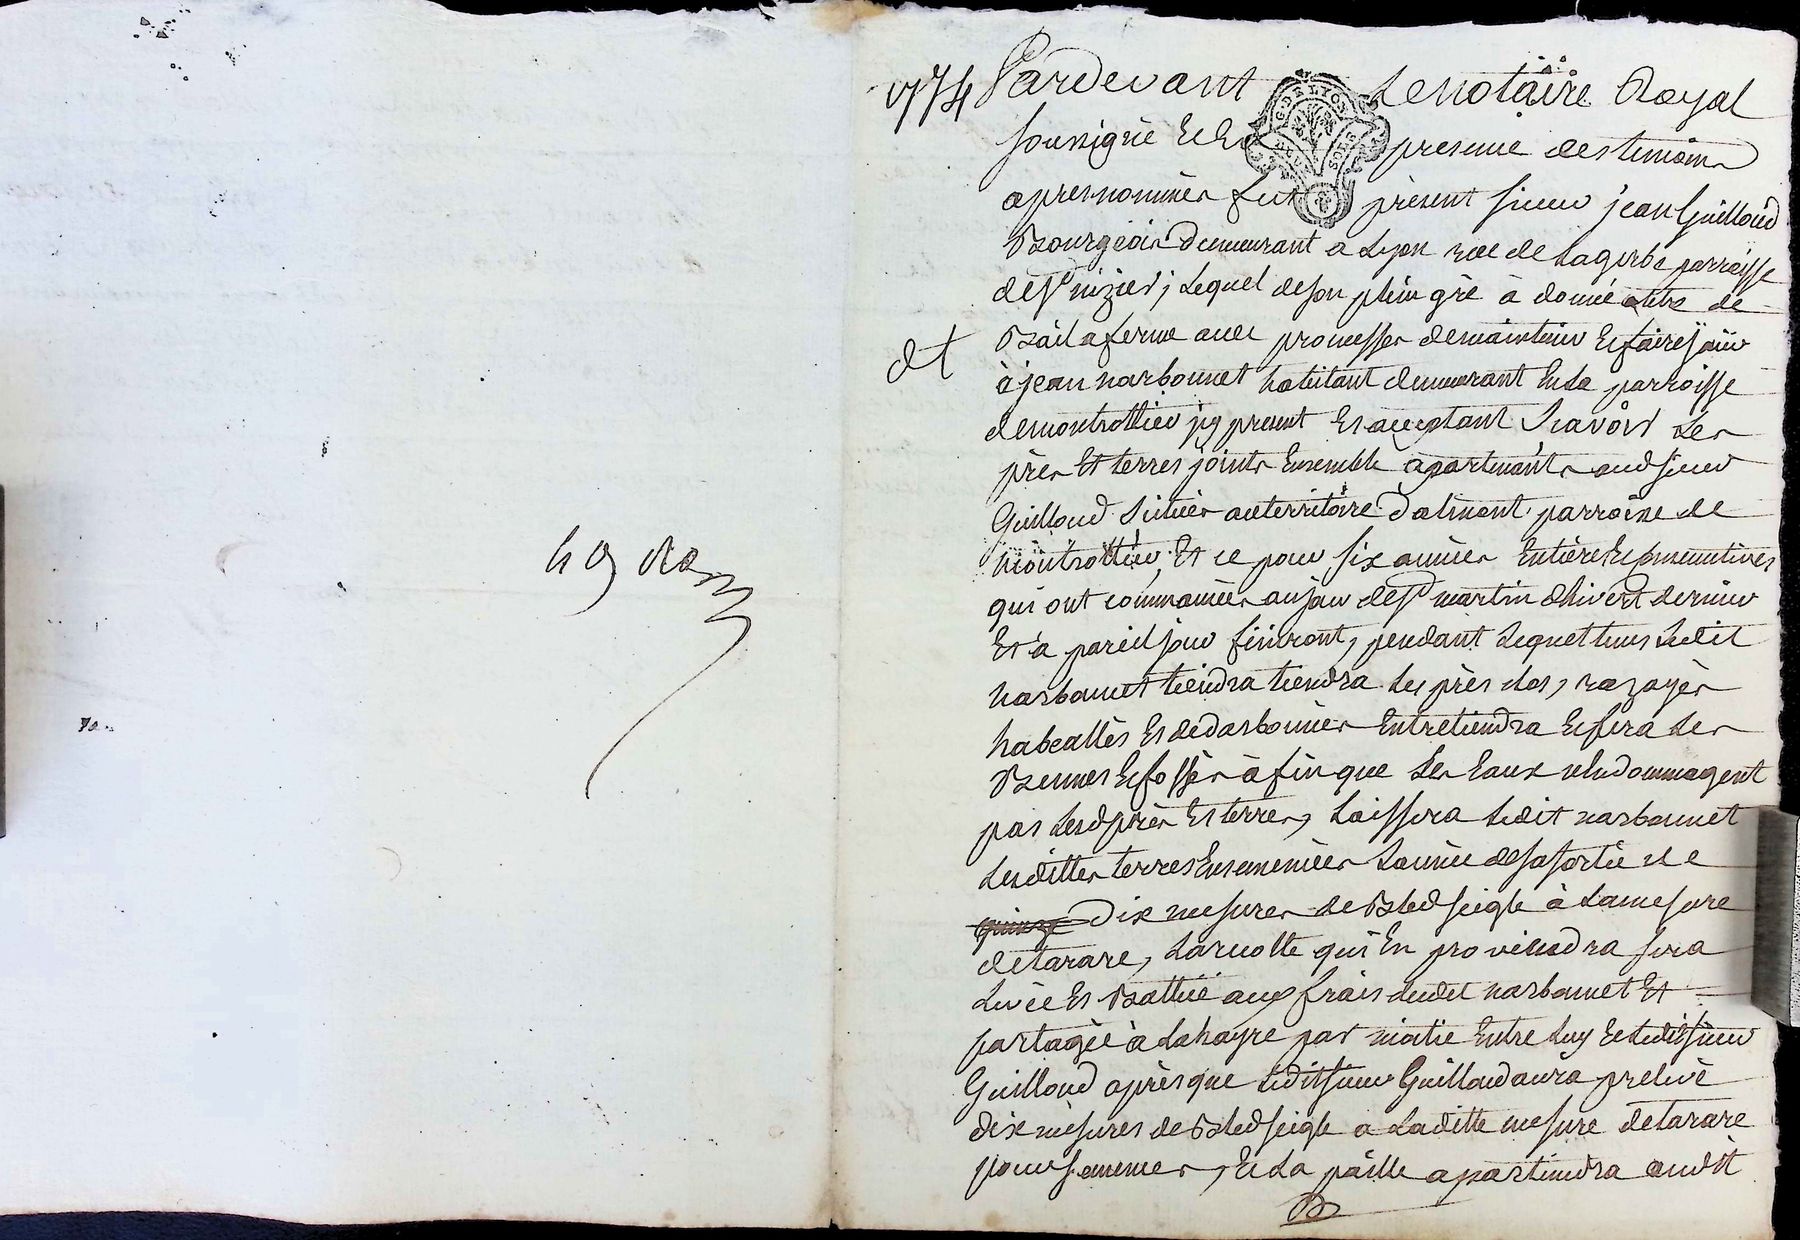 1774 Pardevant Le notaire Royal
soussigné Et En presence des temoins
apres nommés fut présent sieur jean Guilloud
Bourgeois demeurant a Lyon rue de La gerbe parroisse
de St nizier, Lequel de son plein gré à donné a titre de
Bail a ferme avec promesses de maintenir Et faire jouir
dt
à jean narbonnet habitant demeurant En La parroisse
de montrottier jcy present Et acceptant Scavoir Les
près Et terres joints Ensemble apartenants aud sieur
Guilloud Situés au territoire d'alimont parroisse de
Montrottier, Et ce pour six années Entières Et consecutives
qui ont commancées au jour de St martin d'hivert dernier
Et à pareil jour finiront, pendant Lequel tems Ledit
narbonnet tiendra tiendra Les près clos, razoyés
Et Entretiendra Et fera Les
Bennes Et fossés à fin que Les Eaux n'Endommagent
pas Lesd près Et terres, Laissera Ledit narbonnet
Lesdittes terres Ensemencées L'année de sa sortie de
quinze Dix mesures de Bled seigle à La mesure
de tarare, La recolte qui En proviendra sera
Levée Et Battüe aux frais dudit narbonnet Et
partagée à par moitie Entre Luy Et Ledit sieur
Guilloud après que Ledit sieur Guilloud aura prelevé
dix mesures de Bled seigle a Laditte mesure de tarare
pour semences, Et La paille apartiendra audit